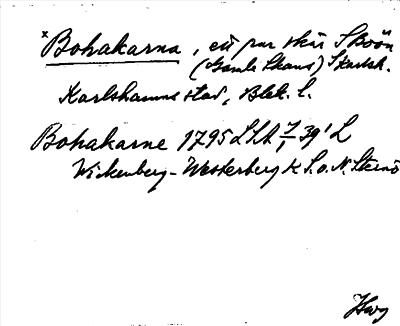 x Bohakarna, ett par skär S Boön
(Gamla Skans) S Karlsh.
Karlshamns stad, Blek. l.
Bohakarne 1795 LSA 7 39' L
Wickenberg-Westerberg k S.o.N. Sternö